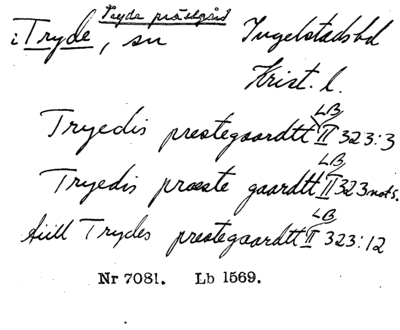 Tryde prästgård
i Tryde, sn Ingelstadsbd
Krist. l.
LB
Tryedis prestegaardtt II 323:3
LB
Tryedis præste gaardtt II 323 nots.
LB
till Trydes prestegaardtt II 323:12
Nr 7081. Lb 1569.